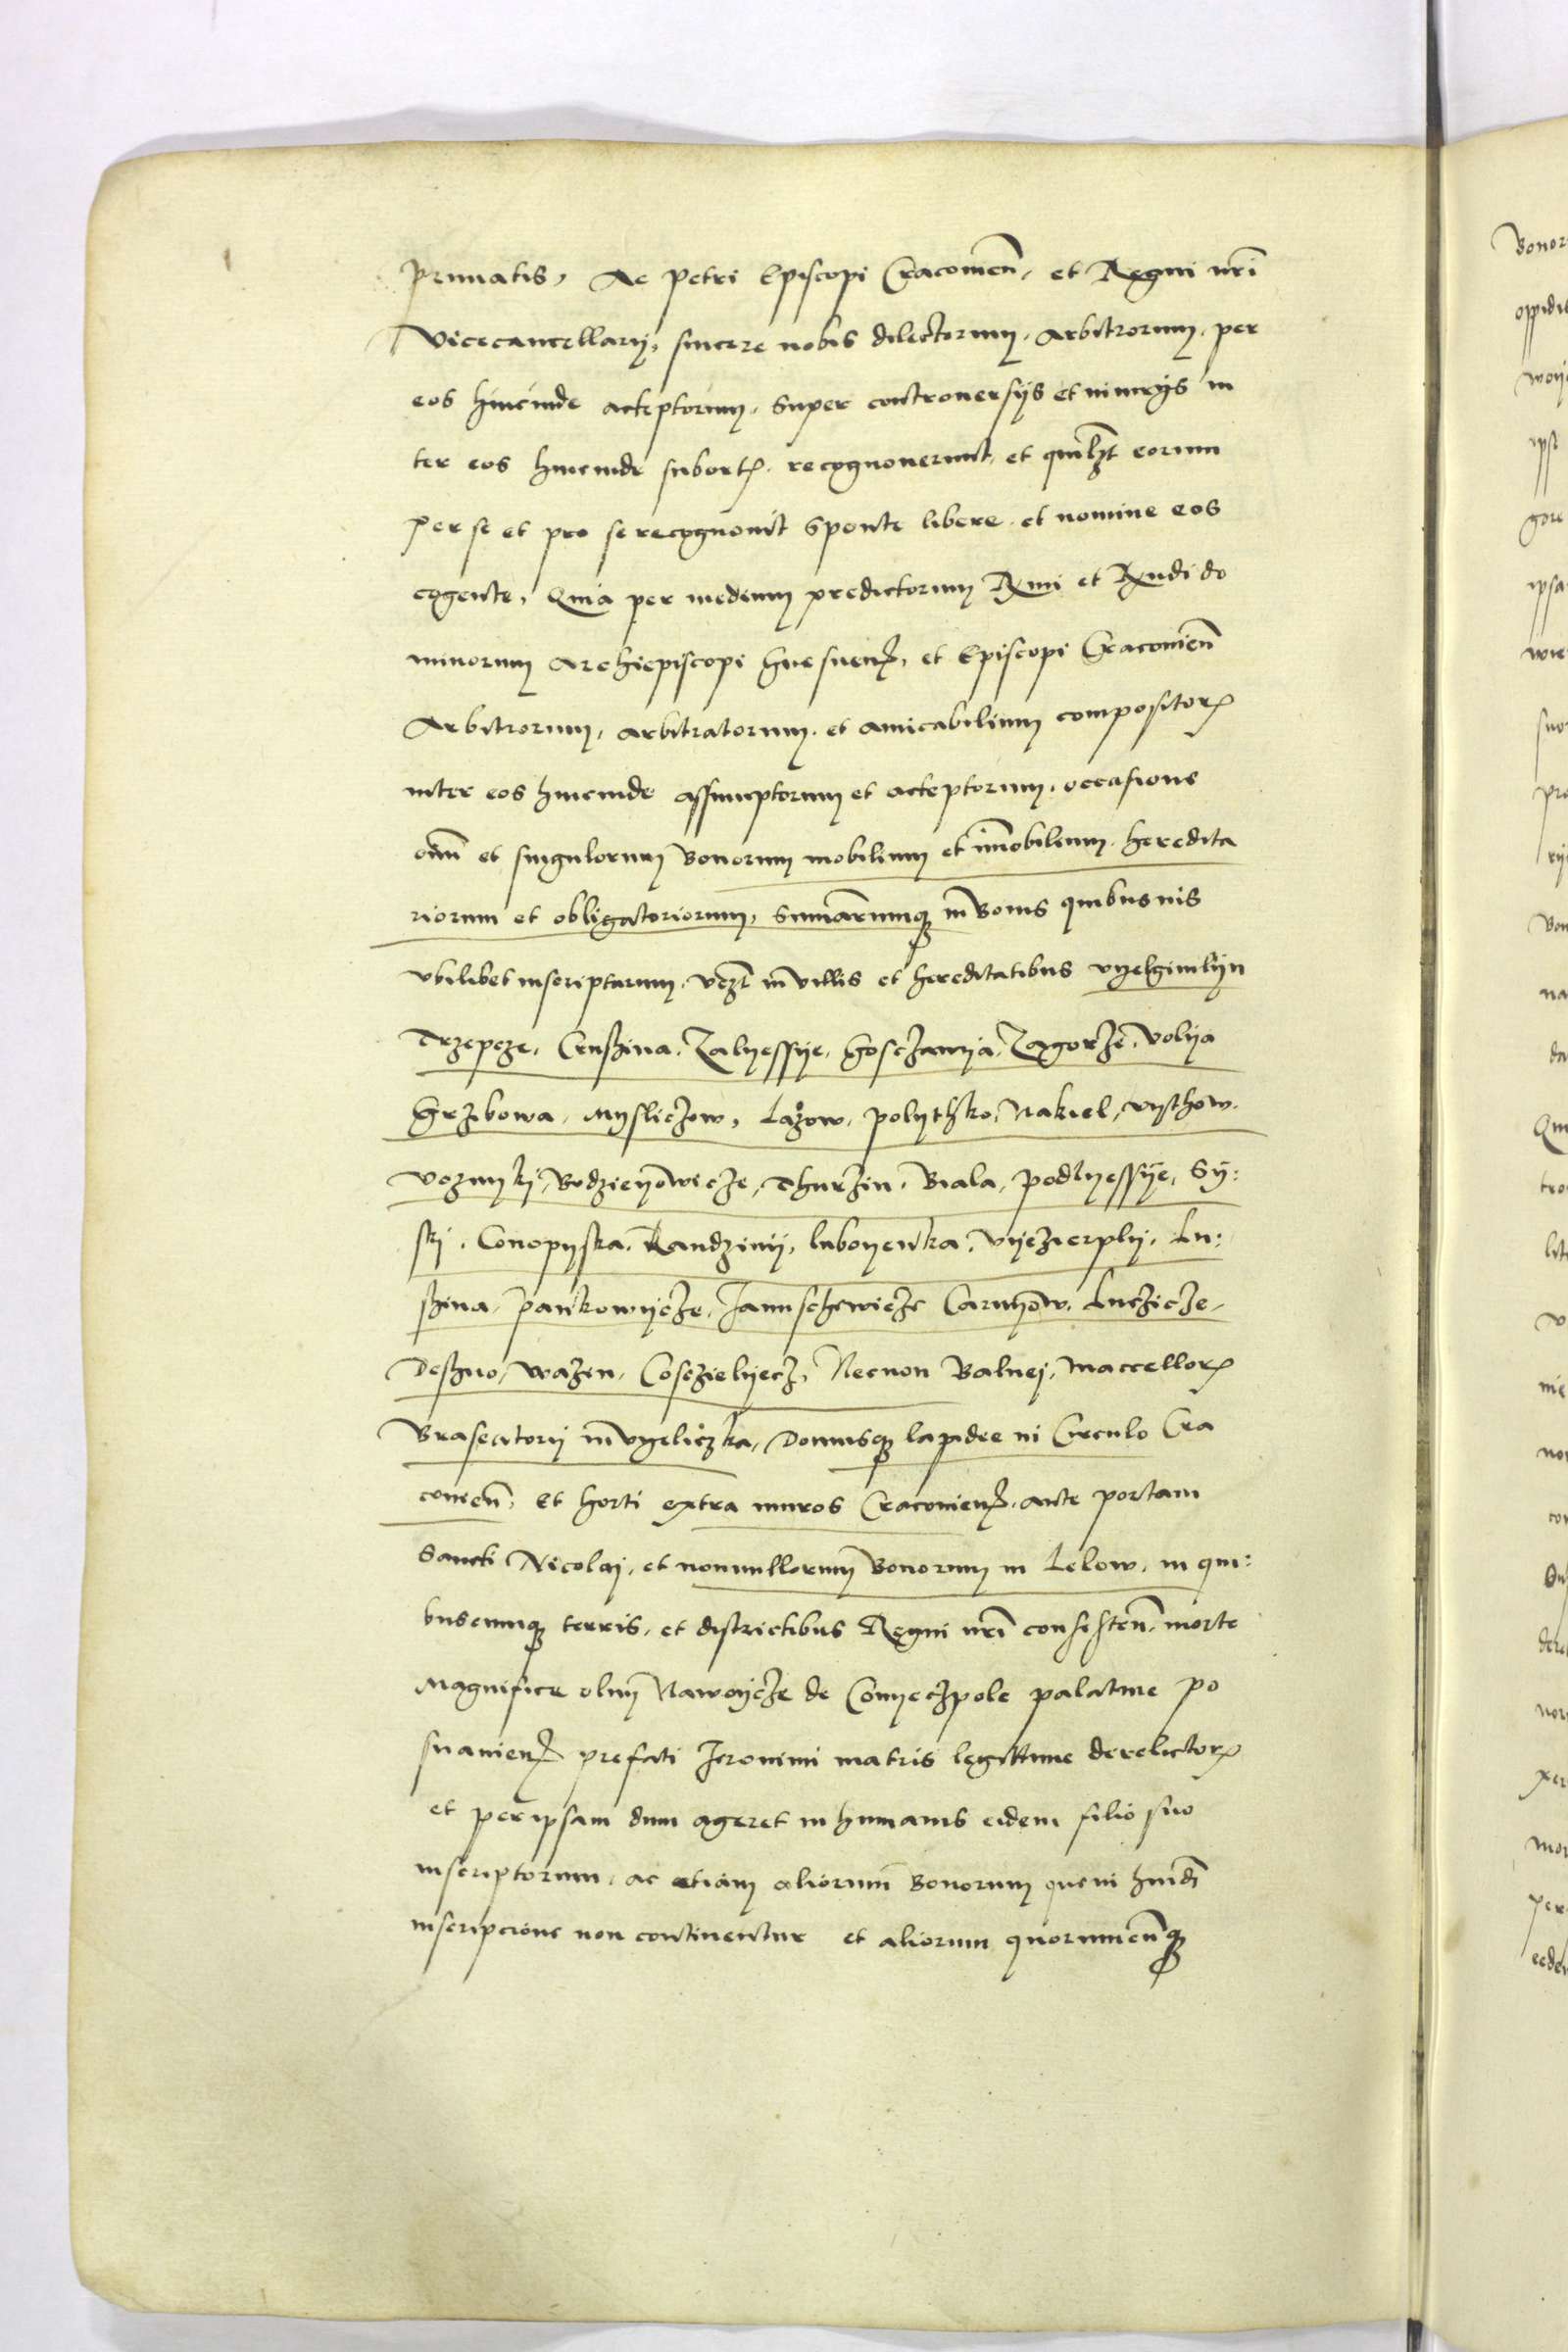 primatis, Ac petri Episcopi Cracovien̄, et Regni nr̄i
Vicecancellarij, sincere nobis dilectorum, arbitrorum, per
eos hincinde acceptorum, super controversijs et iniurijs in
ter eos hincinde subortꝝ, recognoverunt, et quilꝫt eorum
per se et pro se recognovit sponte libere, et nomine eos
cogente, Quia per medium predictorum Rmi et Rndi do
minorum Archiepiscopi Gnesnenꝭ, et Episcopi Cracovien̄
Arbitrorum, arbitratorum, et amicabilium compositorꝝ
inter eos hincinde assumptorum et acceptorum, occasione
om̄ et singulorum Bonorum mobilium et im̄obilium, heredita
riorum et obligatoriorum, summarumqꝫ in Bonis quibusvis
ubilibet inscriptarum, vꝫ in villis et hereditatibus vyelgimlyn
Trzepcze, Crushina, Zalyessye, Gosczamya, Zagorze, Volya
Grzibowa, Mysliczow, Lazow, polythko, Nakiel, vysthow,
voznyky, Bodzieyowicze, Thurzin, Biala, podlyessye, Sy:
ski, Conopyska, Randziny, luboyenka, vyczierply, Lu:
shina, pankowycze, Januschewicze Carnyow, Luczicze,
Deszno, wazin, Cosczielyecz, Necnon Balnei, maccellorꝝ
Braseatorij in vyeliczka, Domusqꝫ lapidee in Circulo Cra
covien̄, et horti extra muros Cracovienꝭ, ante portam
Sancti Nicolai, et nonnullorum Bonorum in Lelow, in qui:
buscumqꝫ terris, et districtibus Regni nr̄i consisten̄, morte
Magnifice olim Nawoycze de Conyeczpole palatine po
snanienꝭ prefati Jeronimi matris legittime derelictorꝝ
et per ipsam dum ageret in humanis eidem filio suo
inscriptorum, ac etiam aliorum Bonorum que in huiꝰdi
inscripcione non continentur et aliorum quorumcunqꝫ